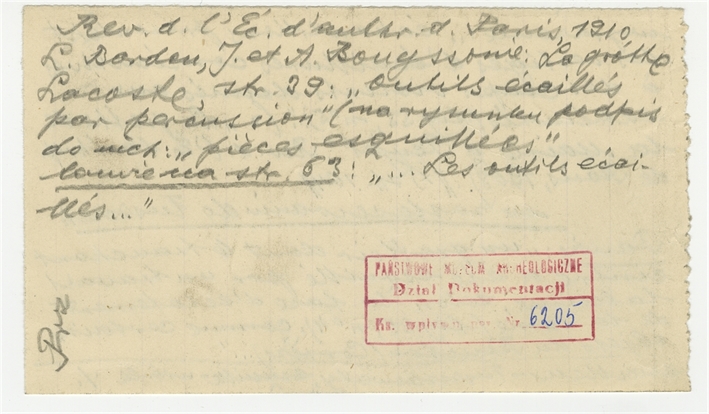 Rev. d. l'Éc. d'anthr. d. Paris, 1910
L. Bardon, J. et A. Bouyssonie: La grotte
Lacoste, str. 39: „outils écaillés
par percussion" (na rysunku podpis
do nich: „pièces esquillées"
również na str. 63: „... Les outils écai-
llés..."
PAŃSTWOWE MUZEUM ARCHEOLOGICZNE
Dział Dokumentacji
Ks. wpływów nr. Nr 6205